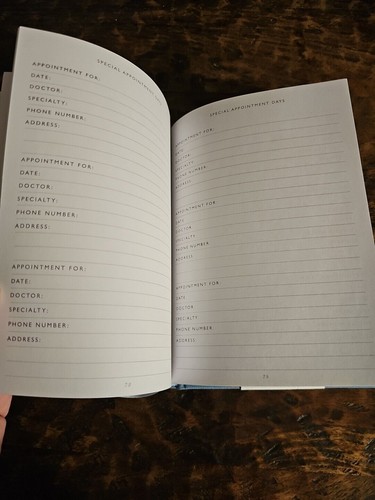 SPECIAL APPOINTMENT
APPOINTMENT FOR:
DATE:
DOCTOR:
SPECIALTY:
PHONE NUMBER:
ADDRESS:
APPOINTMENT FOR:
DATE:
DOCTOR:
SPECIALTY:
PHONE NUMBER:
ADDRESS:
APPOINTMENT FOR:
DATE:
DOCTOR:
SPECIALTY:
PHONE NUMBER:
ADDRESS:
SPECIAL APPOINTMENT DAYS
APPOINTMENT FOR:
DATE
DOCTOR
SPECIALTY
PHONE NUMBER
ADDRESS
APPOINTMENT FOR
DATE
DOCTOR
SPECIALTY
PHONE NUMBER
ADDRESS
APPOINTMENT FOR:
DATE
DOCTOR
SPECIALTY:
PHONE NUMBER
ADDRESS